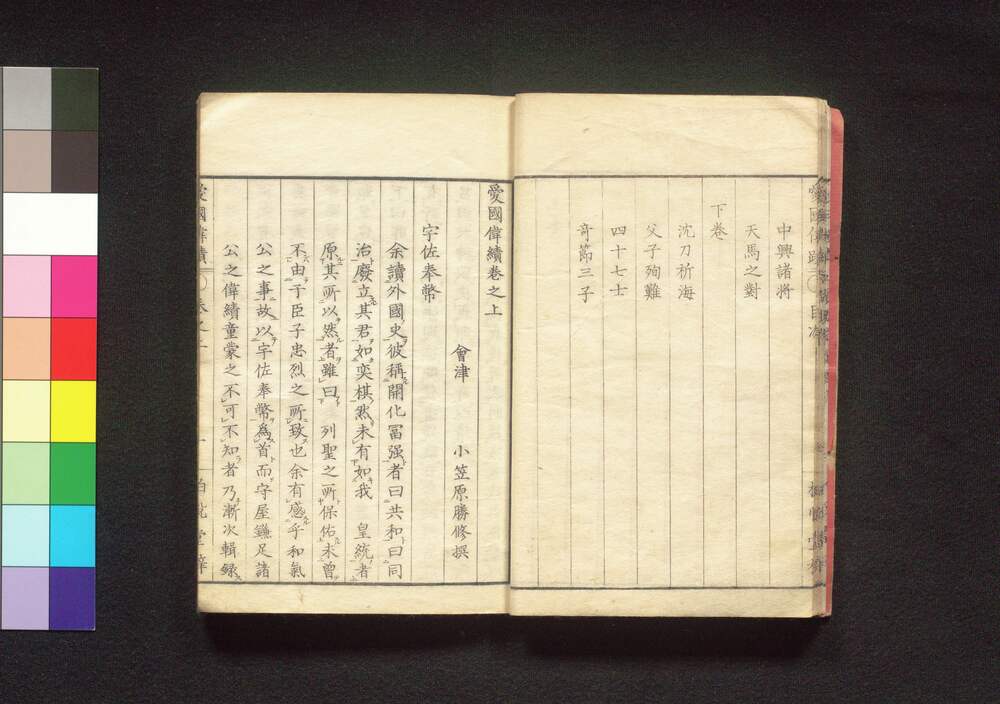 中興諸將
天馬之對
下卷
沈刀祈海
父子殉難
四十七士
奇節三子
愛國偉績卷之上
會津 小笠原勝修撰
宇佐奉幣
余讀外國史彼稱開化冨强者曰共和曰同
治廢立其君如奕棋然未有如我 皇統者
原其所以然者雖曰 列聖之所保佑未曾
不由于臣子忠烈之所致也余有感乎和氣
公之事故以宇佐奉幣為首而守屋鎌足諸
公之偉績童蒙之不可不知者乃漸次輯録
愛國偉績 卷之上